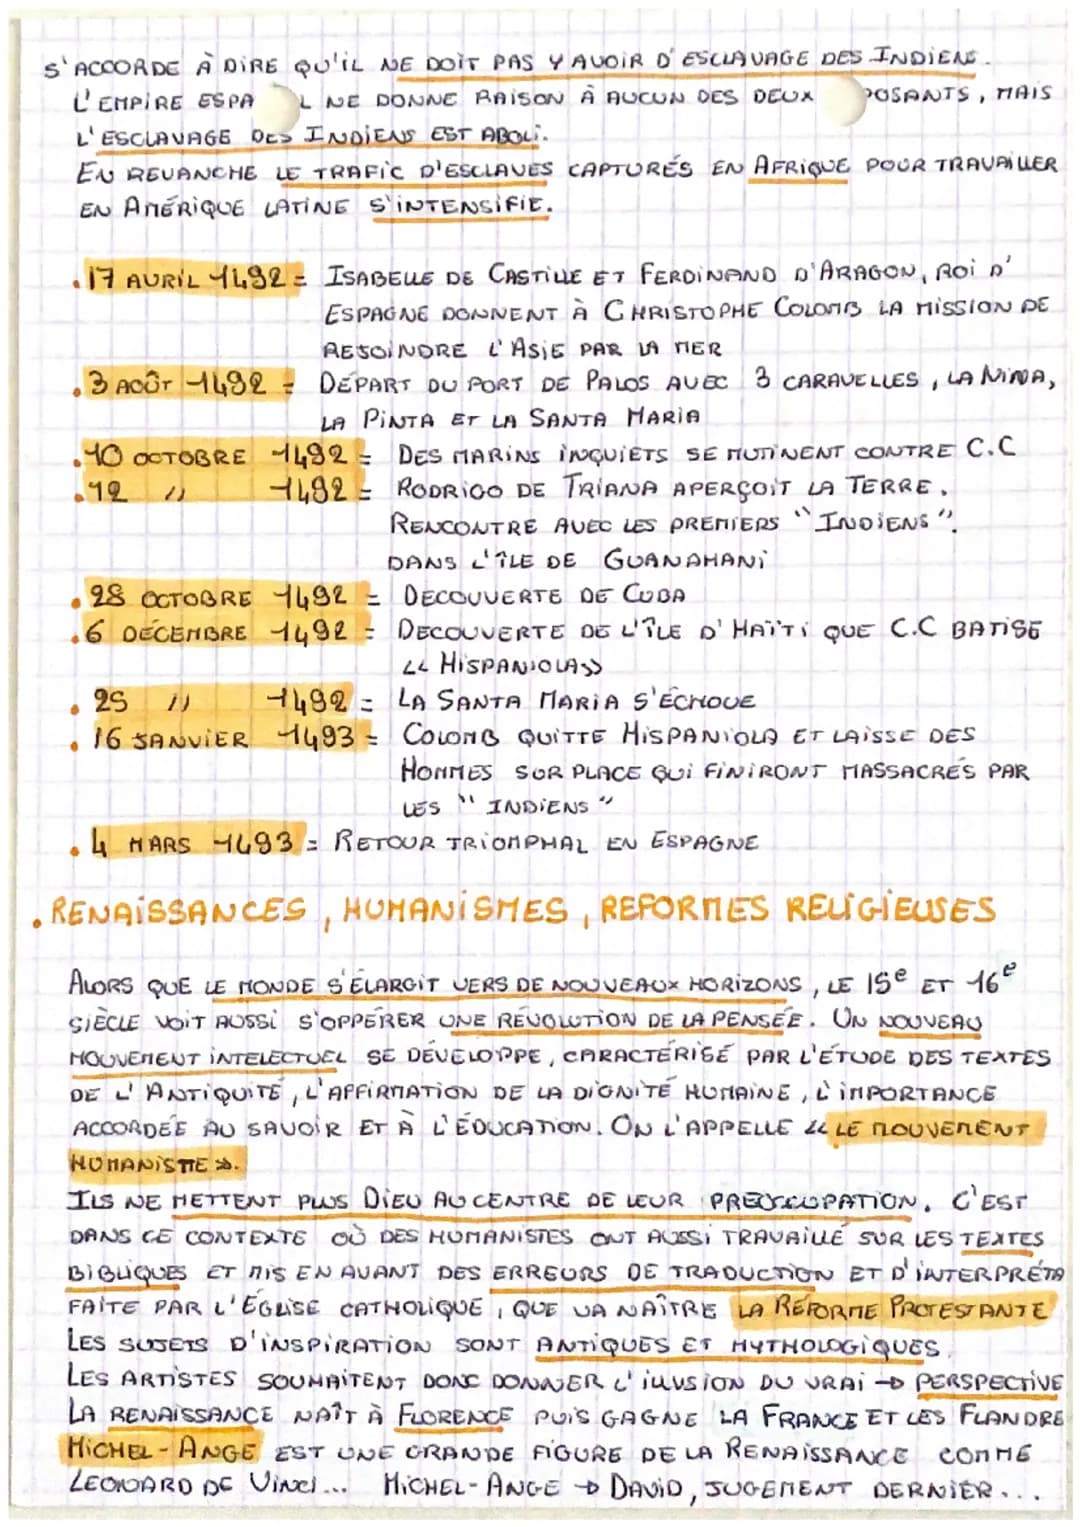 S'ACCORDE À DIRE QU'IL NE DOIT PAS Y AVOIR D'ESCLAVAGE DES INDIENS.
L'EMPIRE ESPA L NE DONNE RAISON À AUCUN DES DEUX POSANTS, MAIS
L'ESCLAVAGE DES INDIENS EST ABOLI.
EN REVANCHE LE TRAFIC D'ESCLAVES CAPTURÉS EN AFRIQUE POUR TRAVAILLER
EN AMÉRIQUE LATINE S'INTENSIFIE.
. 17 AVRIL 1492 = ISABELLE DE CASTILLE ET FERDINAND D'ARAGON, ROI D'
ESPAGNE DONNENT À CHRISTOPHE COLOMB LA MISSION DE
REJOINDRE L'ASIE PAR LA MER
. 3 AOÛT 1492 = DÉPART DU PORT DE PALOS AVEC 3 CARAVELLES, LA NINA,
LA PINTA ET LA SANTA MARIA
. 10 OCTOBRE 1492 = DES MARINS INQUIETS SE MUTINENT CONTRE C.C
. 12 // 1492 = RODRIGO DE TRIANA APERÇOIT LA TERRE.
RENCONTRE AVEC LES PREMIERS "INDIENS".
DANS L'ÎLE DE GUANAHANI
. 28 OCTOBRE 1492 = DECOUVERTE DE CUBA
. 6 DÉCEMBRE 1492 = DECOUVERTE DE L'ÎLE D'HAÏTI QUE C.C BATISE
<< HISPANIOLA >>
. 25 // 1492 = LA SANTA MARIA S'ÉCHOUE
. 16 JANVIER 1493 = COLOMB QUITTE HISPANIOLA ET LAISSE DES
HOMMES SUR PLACE QUI FINIRONT MASSACRÉS PAR
LES "INDIENS"
. 4 MARS 1493 = RETOUR TRIOMPHAL EN ESPAGNE
. RENAISSANCES, HUMANISMES, REFORMES RELIGIEUSES
ALORS QUE LE MONDE S'ÉLARGIT VERS DE NOUVEAUX HORIZONS, LE 15e ET 16e
SIÈCLE VOIT AUSSI S'OPPÉRER UNE RÉVOLUTION DE LA PENSÉE. UN NOUVEAU
MOUVEMENT INTELECTUEL SE DÉVELOPPE, CARACTÉRISÉ PAR L'ÉTUDE DES TEXTES
DE L'ANTIQUITÉ, L'AFFIRMATION DE LA DIGNITÉ HUMAINE, L'IMPORTANCE
ACCORDÉE AU SAVOIR ET À L'ÉDUCATION. ON L'APPELLE << LE MOUVEMENT
HUMANISTE >>.
ILS NE METTENT PLUS DIEU AU CENTRE DE LEUR PRÉOCCUPATION. C'EST
DANS CE CONTEXTE OÙ DES HUMANISTES ONT AUSSI TRAVAILLÉ SUR LES TEXTES
BIBLIQUES ET MIS EN AVANT DES ERREURS DE TRADUCTION ET D'INTERPRÉTA
FAITE PAR L'ÉGLISE CATHOLIQUE, QUE VA NAÎTRE LA RÉFORME PROTESTANTE
LES SUJETS D'INSPIRATION SONT ANTIQUES ET MYTHOLOGIQUES.
LES ARTISTES SOUHAITENT DONC DONNER L'ILLUSION DU VRAI → PERSPECTIVE
LA RENAISSANCE NAÎT À FLORENCE PUIS GAGNE LA FRANCE ET LES FLANDRE
MICHEL-ANGE EST UNE GRANDE FIGURE DE LA RENAISSANCE COMME
LEONARD DE VINCI... MICHEL-ANGE → DAVID, JUGEMENT DERNIER...